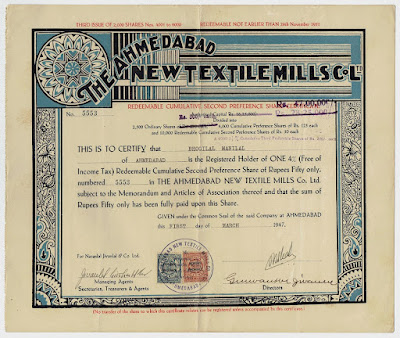 THIRD ISSUE OF 5,000 SHARES Nos. 5001 to 8000 REDEEMABLE NOT EARLIER THAN 25th November 1951
THE AHMEDABAD
NEW TEXTILE MILLS Co. Ld.
REDEEMABLE CUMULATIVE SECOND PREFERENCE SHARE
No. 5553
Divided into
and 10,000 Redeemable Cumulative Second Preference Shares of Rs. 50 each
THIS IS TO CERTIFY that BHOGILAL MANILAL
of AHMEDABAD is the Registered Holder of ONE 4½ (Free of
Income Tax) Redeemable Cumulative Second Preference Share of Rupees Fifty only,
numbered 5553 in THE AHMEDABAD NEW TEXTILE MILLS Co. Ltd.
subject to the Memorandum and Articles of Association thereof and that the sum of
Rupees Fifty only has been fully paid upon this Share.
GIVEN under the Common Seal of the said Company at AHMEDABAD
the FIRST day of MARCH 1947.
For Narudal Jivanlal & Co. Ltd.
Managing Agents
Secretaries, Treasurers & Agents
AHMEDABAD NEW TEXTILE
Directors
(No transfer of the share to which the certificate relates can be registered unless accompanied by this certificate.)